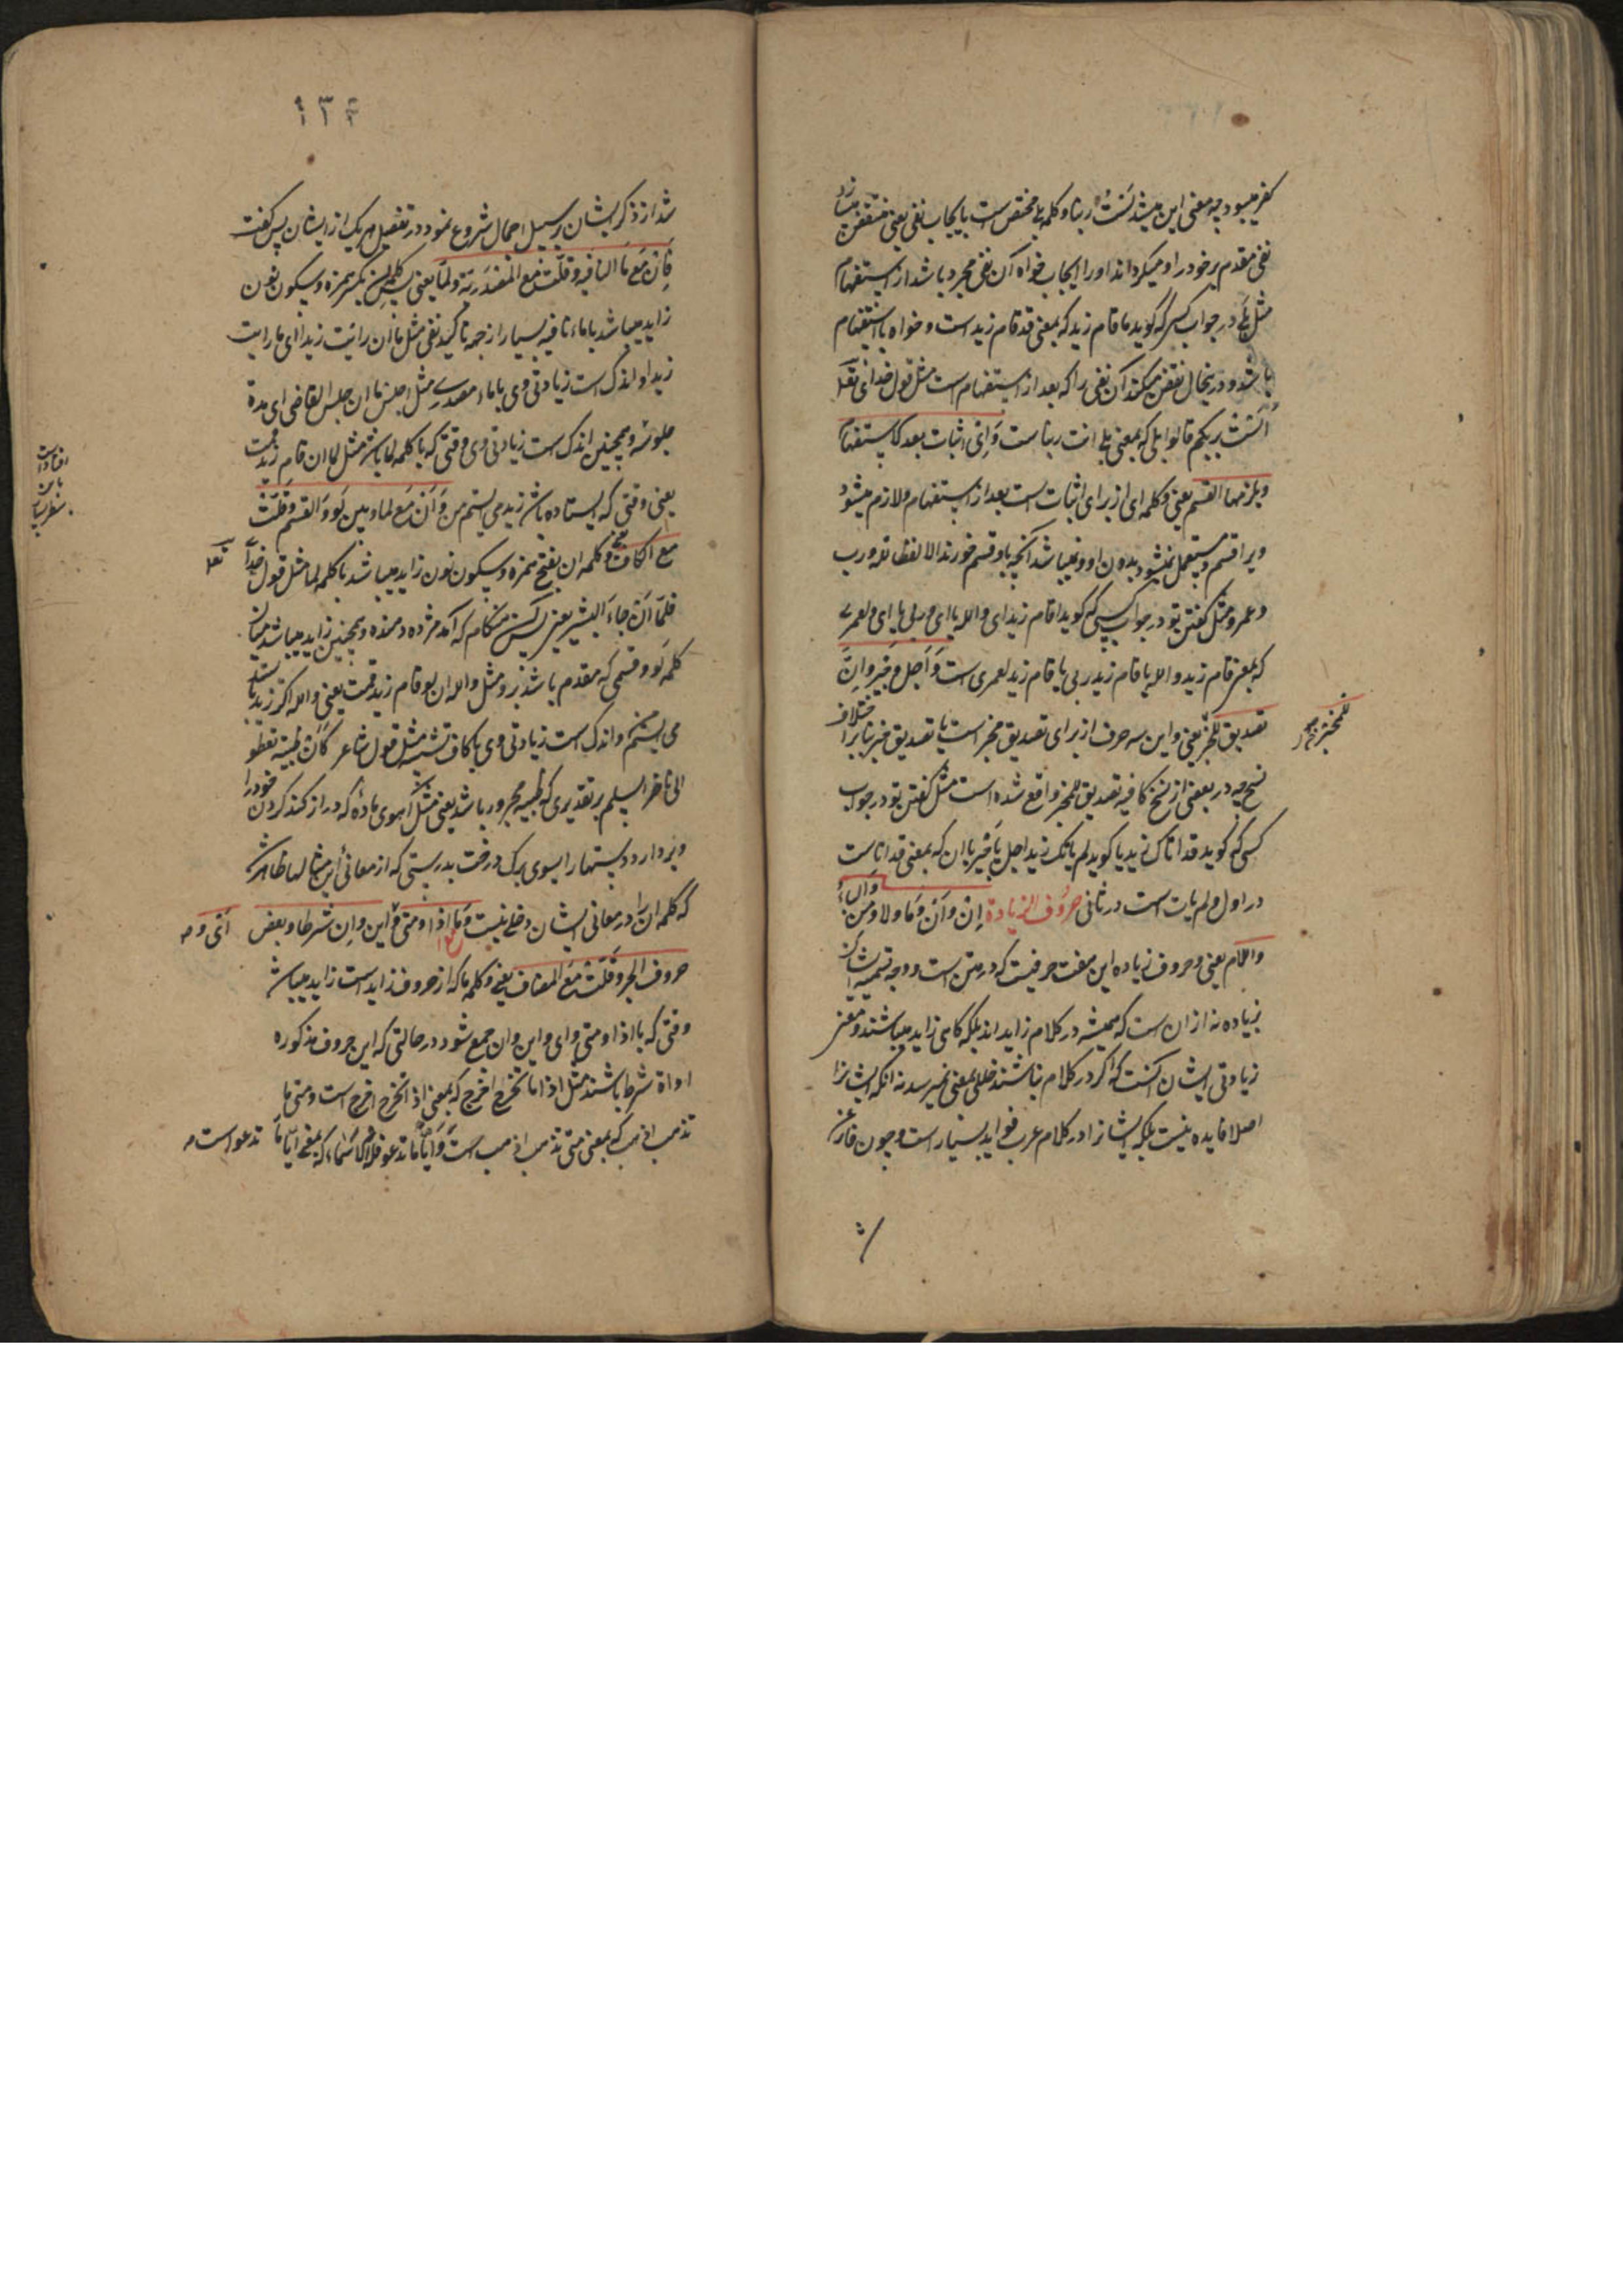 کفر میبود چه معنی این میشد لست ربنا و کلمه بلی مختص است بایجاب نفی یعنی منتقض میسازد
نفی متقدم بر خود را و میگرداند او را ایجاب خواه آن نفی مجرد باشد از استفهام
مثل بلی در جواب کسی که گوید ما قام زید که بمعنی قد قام زید است و خواه با استفهام
باشد و درینحال نقض میکند آن نفی را که بعد از استفهام است مثل قول خدای تعالی
ألست بربکم قالوا بلی که بمعنی بلی انت ربنا ست وَاِی اثبات بعد الاستفهام
ویلزمها القسم یعنی و کلمه ای از برای اثبات است بعد از استفهام و لازم میشود
ویرا قسم و مستعمل نمیشود بدون او و نمیباشد آنچه باو قسم خورند الا لفظ الله و رب
و عمرو مثل گفتن تو در جواب کسی که گوید اقام زید ای والله یا ای وربی یا ای ولعمری
که بمعنی قام زید والله یا قام زید ربی یا قام زید لعمری است وَاَجَل وجَیرِ واِنَّ
تصدیق للمخبر یعنی و این سه حرف از برای تصدیق مخبر است یا تصدیق خبر بنابر اختلاف
للخبر
نسخ چه در بعضی از نسخ کافیه تصدیق للخبر واقع شده است مثل گفتن تو در جواب
کسی که گوید قد اتاک زید یا گوید لم یاتک زید اجل یا جیر یا ان که بمعنی قد اتا ست
در اول و لم یات است در ثانی حروف الزیادة اِنْ واَنْ وَمَا ولا ومِن وَالباءُ
واللام یعنی و حروف زیاده این هفت حرفیست که در متن است و وجه تسمیه ایشان
بزیاده نه از ان است که همیشه در کلام زاید اند بلکه گاهی زاید میباشند و معنی
زیادتی ایشان آنست که اگر در کلام نباشند خللی بمعنی نمیرسد نه آنکه ایشانرا
اصلا فایده نیست بلکه ایشانرا در کلام عرب فواید بسیار است و چون فارغ
شد از ذکر ایشان بر سبیل اجمال شروع نمود در تفصیل هر یک از ایشان پس گفت
فَاِن مَعَ مَا النافیه وقلّت مع المصدریة ولمّا یعنی پس کلمه اِن بکسر همزه و سکون نون
زاید میباشد با ماء نافیه بسیار از جهه تاکید نفی مثل ما ان رأیت زیدا ای ما رایت
زیدا و اندک است زیادتی وی با ماء مصدری مثل اجلس ما ان جلس القاضی ای مدة
جلوسه و همچنین اندک است زیادتی وی وقتی که با کلمه لما باشد مثل لما ان قام زید قمت
یعنی وقتی که ایستاده باشد زید می ایستم من وَاَن مَعَ لما وبین لَو وَالقسم وقلّت
مع الکاف یعنی و کلمه ان بفتح همزه و سکون نون زاید میباشد با کلمه لما مثل قول خدای تعالی
فلمّا اَن جاءَ البشیر یعنی پس هنگام که آمد مژده دهنده و همچنین زاید میباشد میان
کلمه لَو و قسمی که مقدم باشد برو مثل والله ان لو قام زید قمت یعنی والله اگر زید بایستد
می ایستم و اندک است زیادتی وی با کاف تشبیه مثل قول شاعر کَاَن ظبیة تعطو
الی ناضر السلم بر تقدیری که ظبیه مجرور باشد یعنی مثل آهوی ماده که دراز کند گردن خود را
و بردارد دستها را بسوی برگ درخت بدرستی که از معانی این مثالها ظاهر شد
که کلمه ان را در معانی ایشان دخلی نیست وَمَا مع اذا ومتی وَ ایّ واین وان شرطا وبعض
حروف الجر وقلّت مَعَ المضاف یعنی و کلمه ما که از حروف زاید است زاید میباشد
وقتی که با اذا و متی و ای و این و ان جمع شود در حالتی که این حروف مذکوره
اداة شرط باشند مثل اذا ما تخرج اخرج که بمعنی اذا تخرج اخرج است و متی ما
تذهب اذهب که بمعنی متی تذهب اذهب است وَاَیّا مَا تدعو فله الاسماء که بمعنی ایّا تدعو است